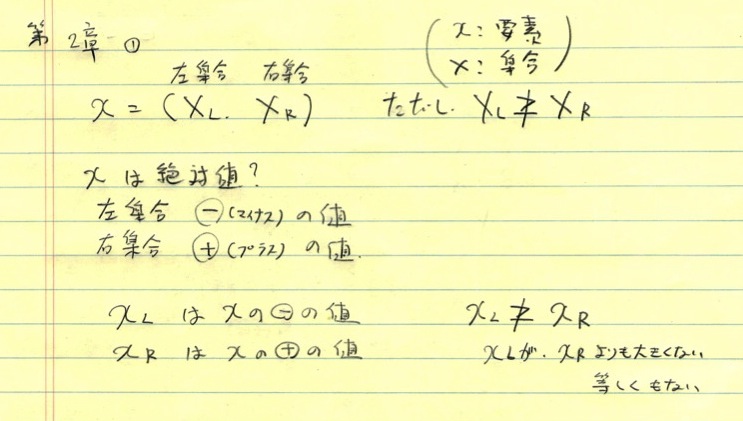 第2章 ①
(x: 要素
X: 集合)
左集合 右集合
x = (X_L. X_R) ただし X_L ≱ X_R
xは絶対値?
左集合 ⊖(マイナス)の値
右集合 ⊕(プラス)の値.
x_L は xの⊖の値 x_L ≱ x_R
x_R は xの⊕の値 x_Lが. x_Rよりも大きくない
等しくもない